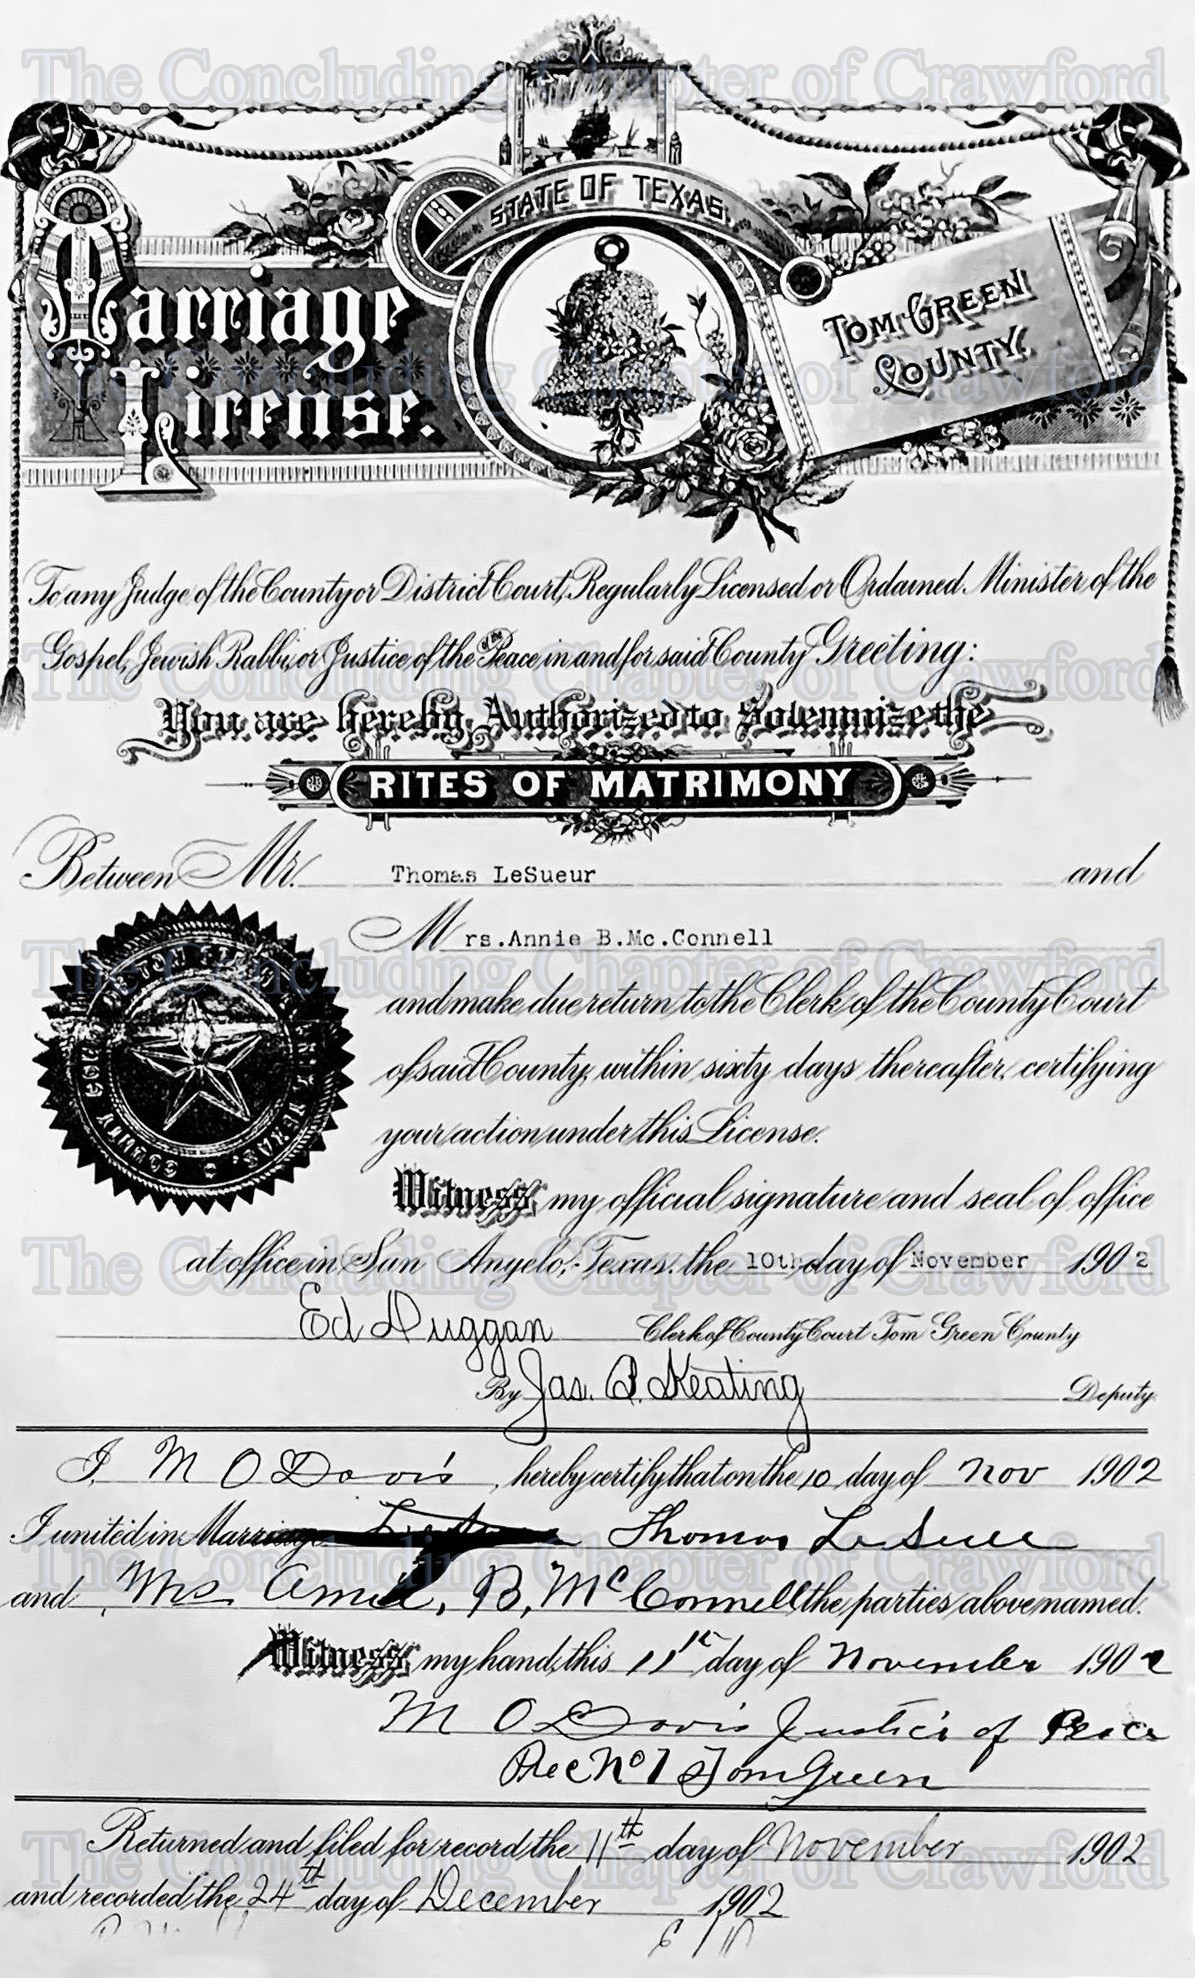 The Concluding Chapter of Crawford
STATE OF TEXAS
Marriage License.
TOM GREEN COUNTY.
The Concluding Chapter of Crawford
To any Judge of the County or District Court, Regularly Licensed or Ordained Minister of the
Gospel, Jewish Rabbi, or Justice of the Peace in and for said County Greeting:
The Concluding Chapter of Crawford
You are hereby Authorized to Solemnize the
RITES OF MATRIMONY
Between Mr. Thomas LeSueur and
Mrs. Annie B. Mc. Connell
The Concluding Chapter of Crawford
and make due return to the Clerk of the County Court
of said County, within sixty days thereafter, certifying
your action under this License.
Witness my official signature and seal of office
at office in San Angelo, Texas. the 10th day of November 1902
The Concluding Chapter of Crawford
Ed Duggan Clerk of County Court Tom Green County
By Jas. Keating Deputy
I, M O Davis, hereby certify that on the 10 day of Nov 1902
I united in Marriage Thomas Le Sueur
and Mrs Annie B. McConnell the parties above named.
The Concluding Chapter of Crawford
Witness my hand, this 11 day of November 1902
M O Davis Justice of Peace
Prec No 1 Tom Green
Returned and filed for record the 11th day of November 1902
The Concluding Chapter of Crawford
and recorded the 24th day of December 1902